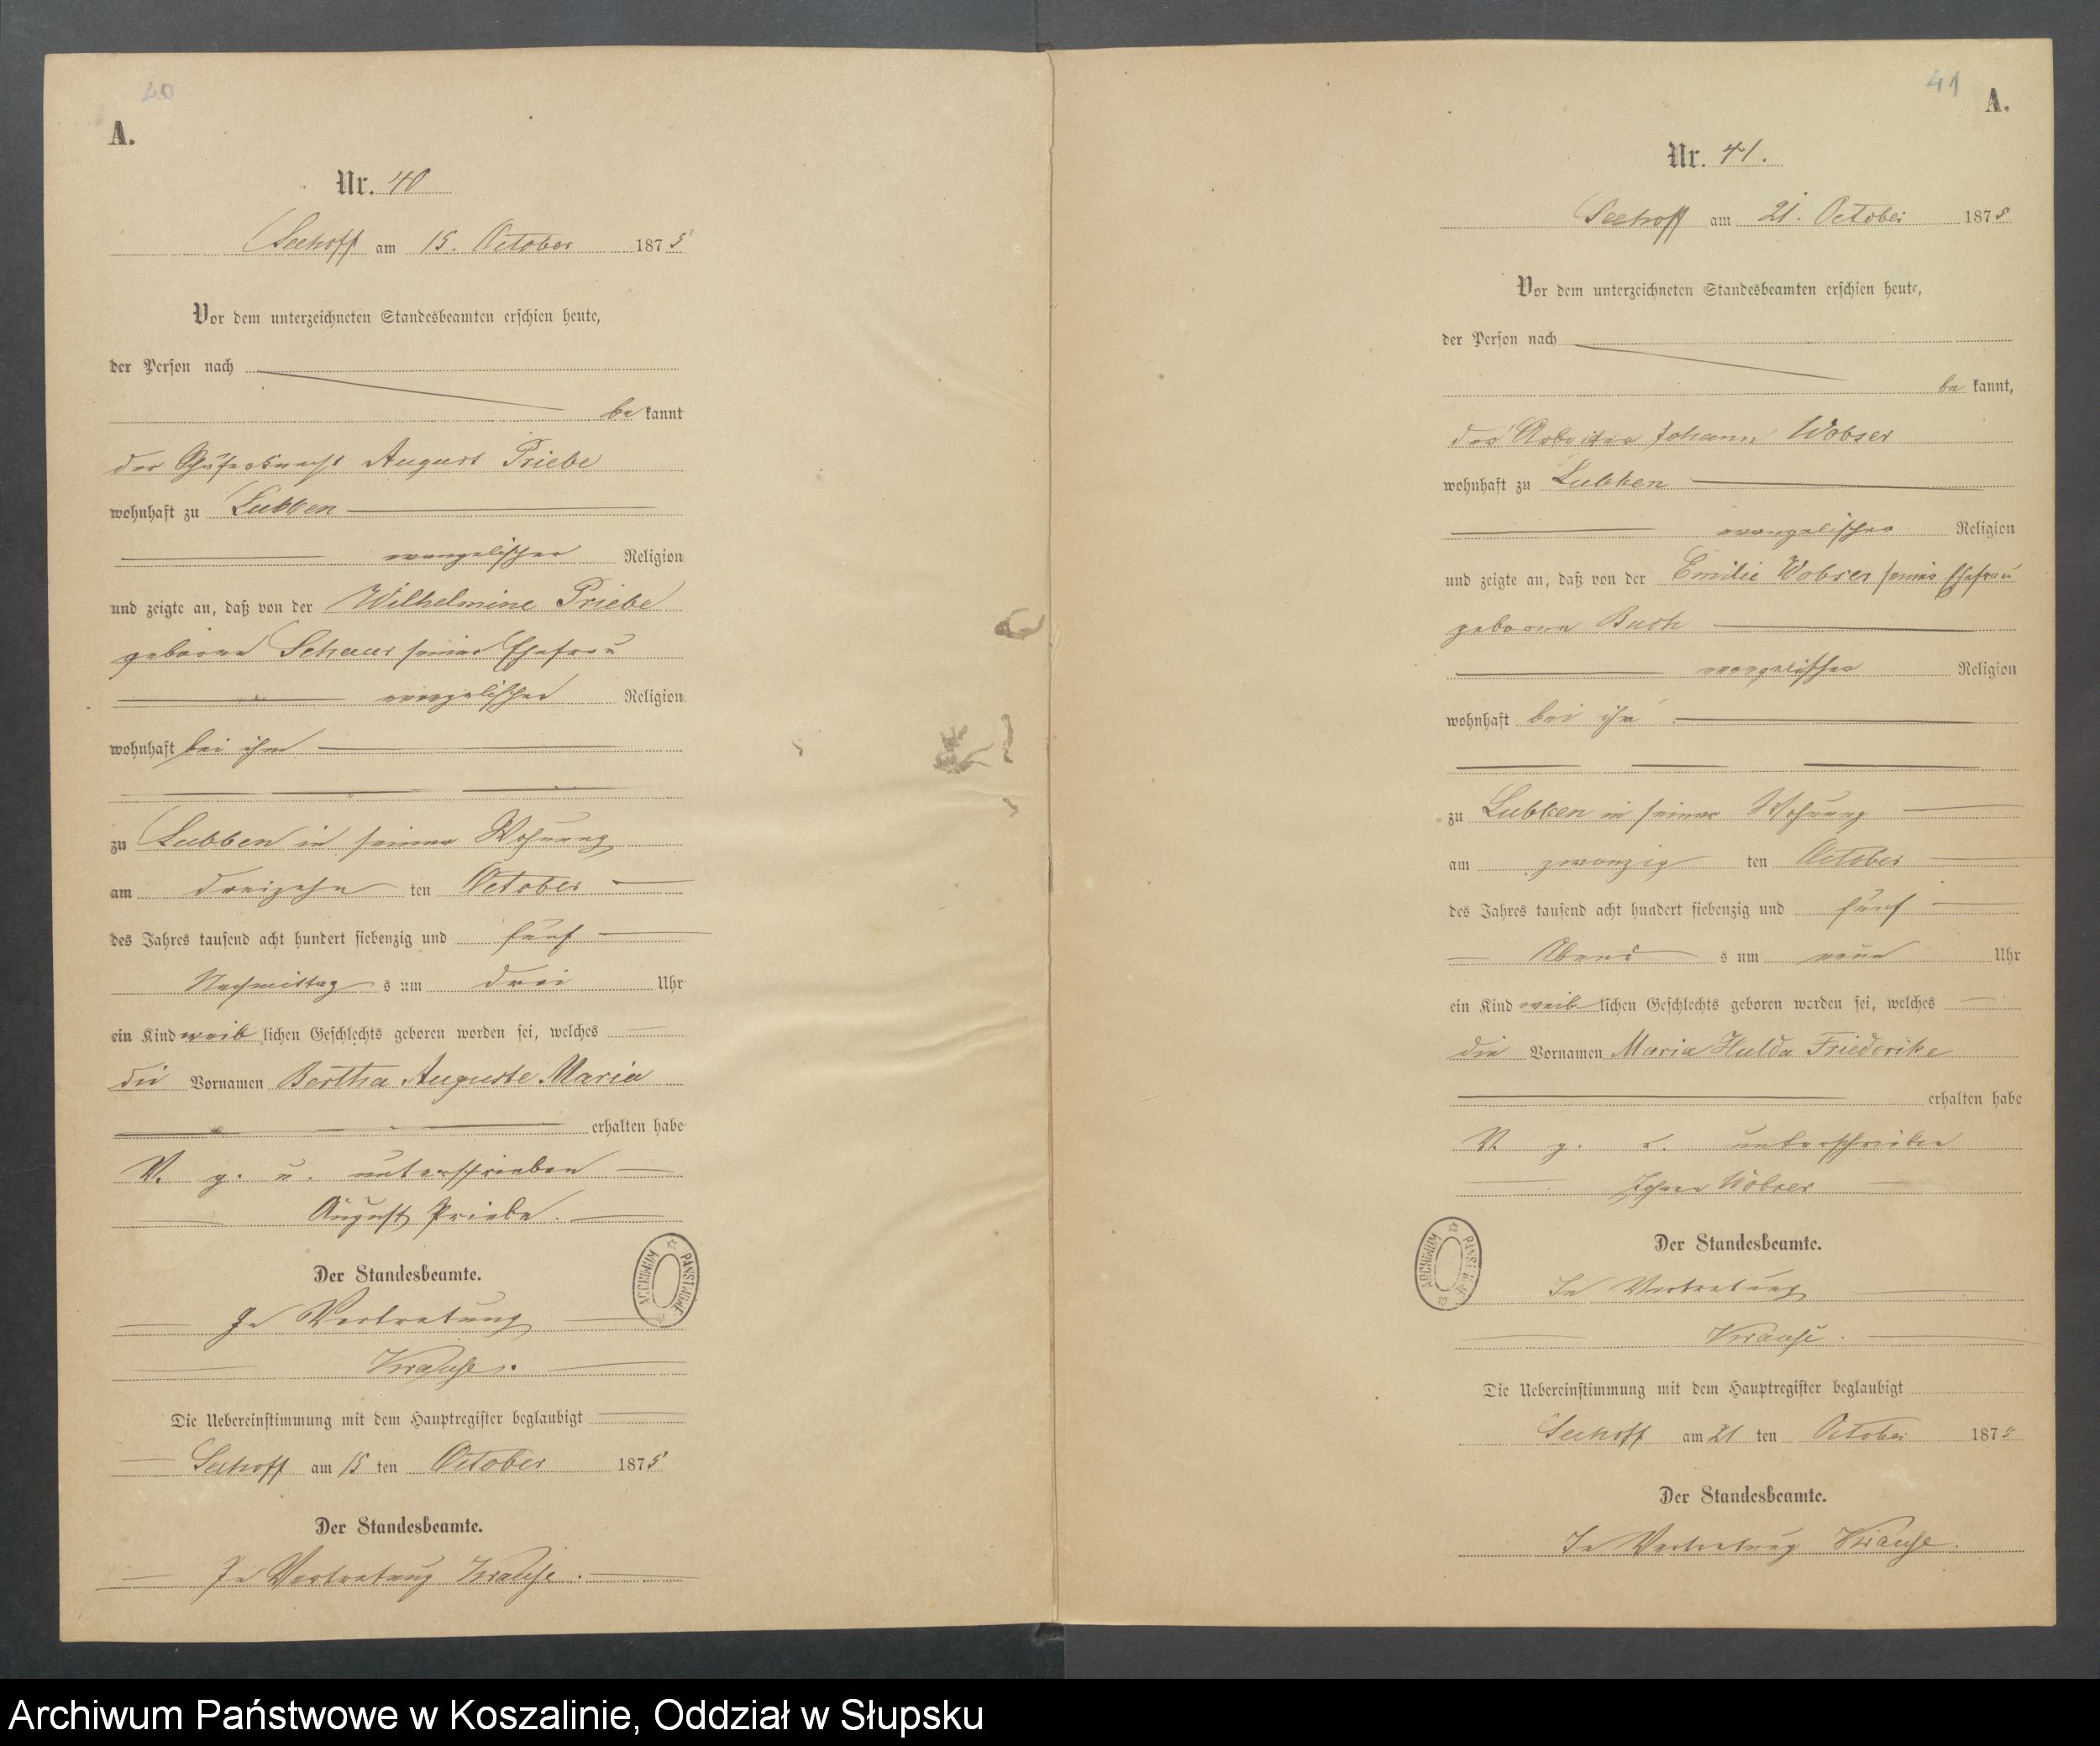 40
A.
Nr. 40
Seehoff am 15. October 1875
Vor dem unterzeichneten Standesbeamten erschien heute,
der Person nach
be kannt
der Schäferknecht August Priebe
wohnhaft zu Lubben
evangelischer Religion
und zeigte an, daß von der Wilhelmine Priebe
geborne seiner Ehefrau
evangelischer Religion
wohnhaft bei ihm
zu Lubben in seiner Wohnung
am dreizehn ten October
des Jahres tausend acht hundert siebenzig und fünf
Nachmittag s um drei Uhr
ein Kind weib lichen Geschlechts geboren worden sei, welches
die Vornamen Bertha Auguste Maria
erhalten habe
V. g. u. unterschrieben
August Priebe.
Der Standesbeamte.
In Vertretung
Krause.
ARCHIWUM PAŃSTWOWE
Die Uebereinstimmung mit dem Hauptregister beglaubigt
Seehoff am 15 ten October 1875
Der Standesbeamte.
In Vertretung Krause.
41
A.
Nr. 41.
Seehoff am 21. October 1875
Vor dem unterzeichneten Standesbeamten erschien heute,
der Person nach
be kannt,
der Arbeiter Johann Wobser
wohnhaft zu Lubben
evangelischer Religion
und zeigte an, daß von der Emilie Wobser seiner Ehefrau
geborne Buch
evangelischer Religion
wohnhaft bei ihm
zu Lubben in seiner Wohnung
am zwanzig ten October
des Jahres tausend acht hundert siebenzig und fünf
Abend s um neun Uhr
ein Kind weib lichen Geschlechts geboren worden sei, welches
die Vornamen Maria Hulda Friederike
erhalten habe
V. g. u. unterschrieben
Wobser
Der Standesbeamte.
In Vertretung
Krause.
ARCHIWUM PAŃSTWOWE
Die Uebereinstimmung mit dem Hauptregister beglaubigt
Seehoff am 21 ten October 1875
Der Standesbeamte.
In Vertretung Krause.
Archiwum Państwowe w Koszalinie, Oddział w Słupsku